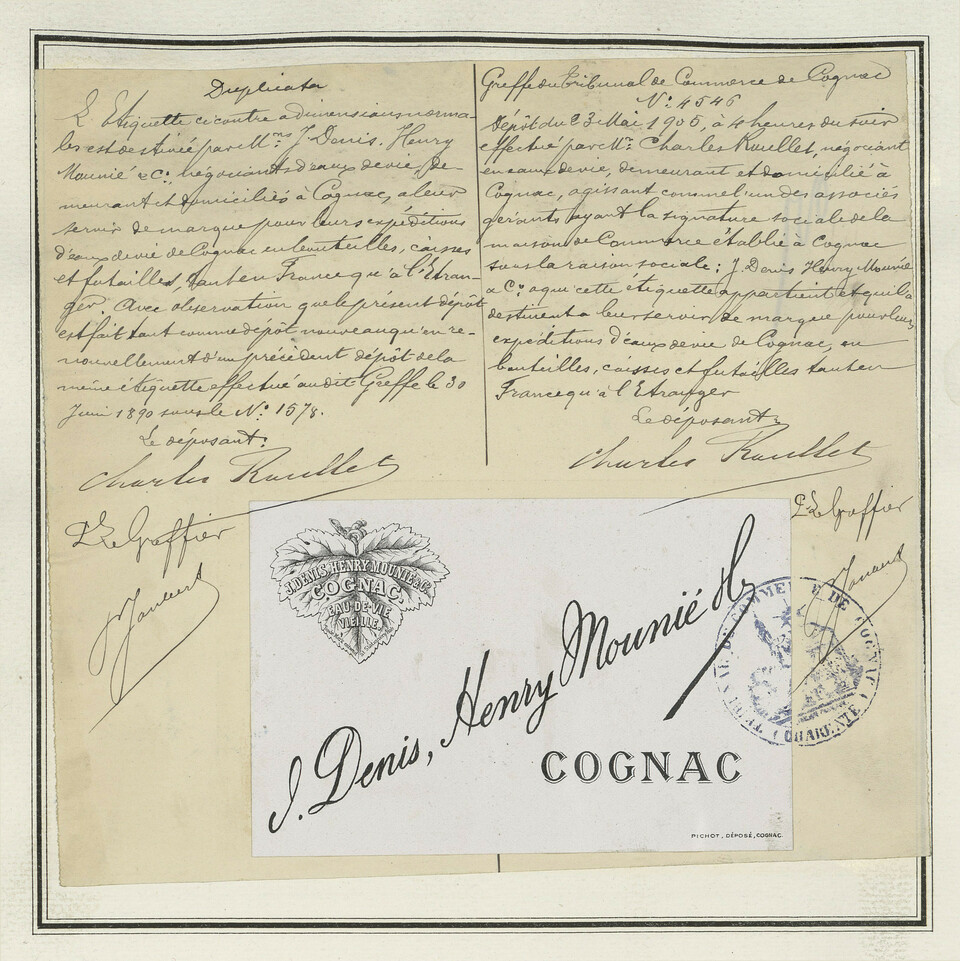 Duplicata
L'Etiquette ci contre a dimensions norma-
les est destinée par Mrs J. Denis. Henry
Mounié & Co. négociants d'eaux de vie, de-
meurant et domiciliés à Cognac, a leur
servir de marque pour leurs expéditions
d'eaux de vie de Cognac en bouteilles, caisses
et futailles, tant en France qu'à l'Etran-
ger. Avec observation que le présent dépôt
est fait tant comme dépôt nouveau qu'en re-
nouvellement d'un précédent dépôt de la
même étiquette effectué au dit Greffe le 30
Juin 1890 sous le No. 1578.
Le déposant:
Charles Roullet
Pr. Le Greffier
Greffe du Tribunal de Commerce de Cognac
No. 4546
Dépôt du 23 Mai 1905, à 4 heures du soir
effectué par Mr. Charles Roullet, négociant
en eaux de vie, demeurant et domicilié à
Cognac, agissant comme l'un des associés
gérants ayant la signature sociale de la
maison de Commerce établie à Cognac
sous la raison sociale: J. Denis Henry Mounié
& Co. a qui cette étiquette appartient et qui la
destinent a leur servir de marque pour leurs
expéditions d'eaux de vie de Cognac, en
bouteilles, caisses et futailles tant en
France qu'à l'Etranger
Le déposant:
Charles Roullet
Pr. Le Greffier
J. DENIS, HENRY MOUNIÉ & Co.
COGNAC.
EAU-DE-VIE
VIEILLE
J. Denis, Henry Mounié & Co
COGNAC
PICHOT, DÉPOSÉ, COGNAC.
TRIBUNAL DE COMMERCE DE COGNAC (CHARENTE)